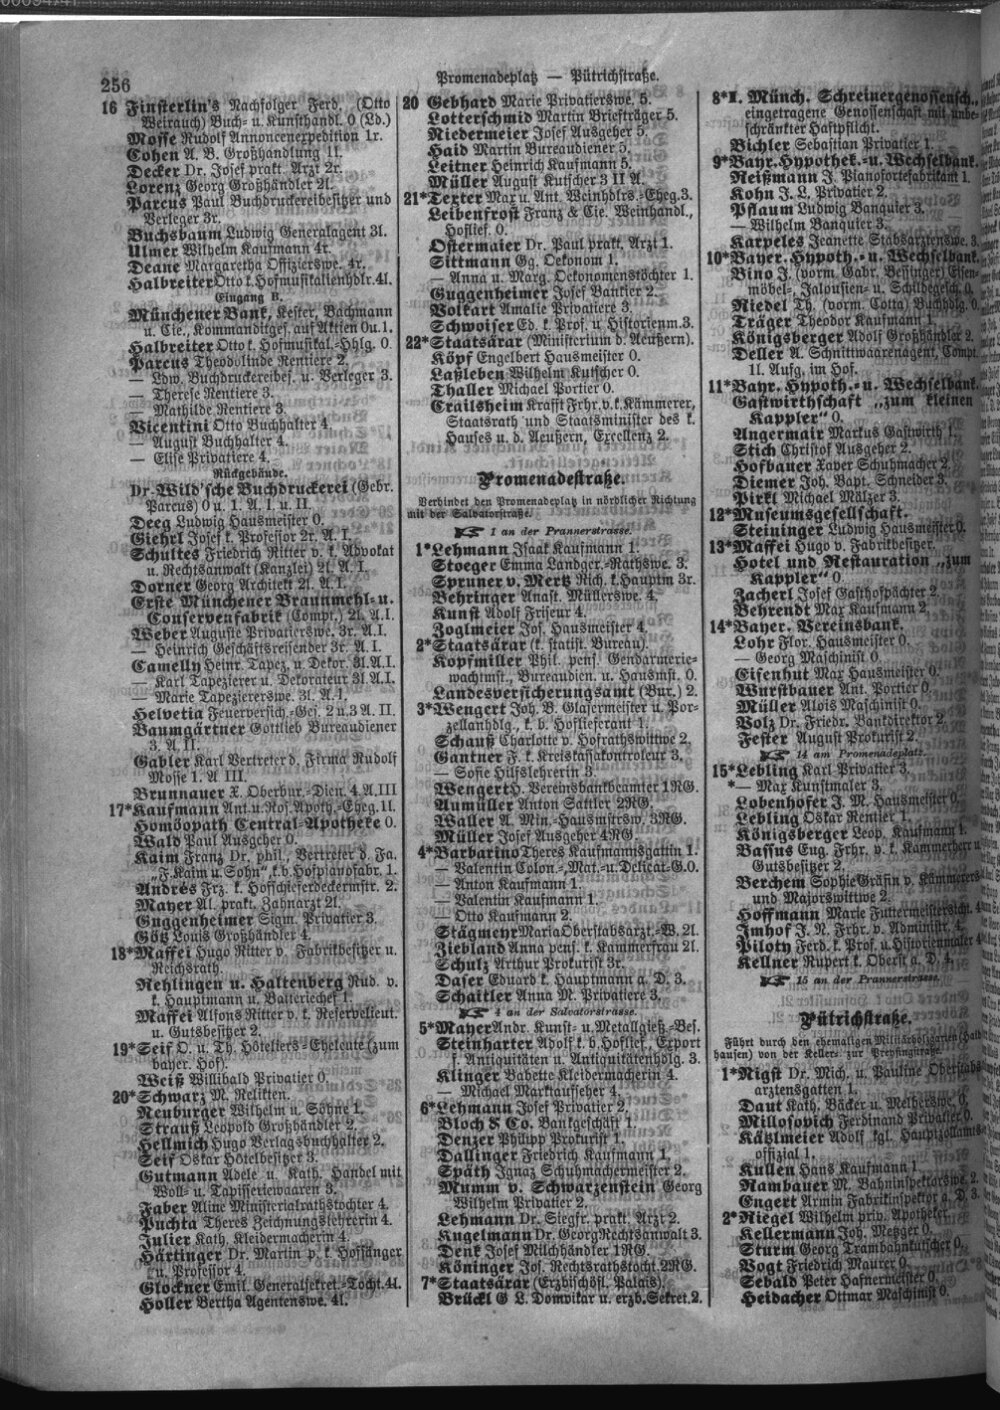 256
Promenadeplatz — Pütrichstraße.
16 Finsterlin's Nachfolger Ferd. (Otto
Weirauch) Buch- u. Kunsthandl. 0 (Ld.)
Mosse Rudolf Annoncenexpedition 1r.
Cohen A. B. Großhandlung 1l.
Decker Dr. Josef prakt. Arzt 2r.
Lorenz Georg Großhändler 2l.
Parcus Paul Buchdruckereibesitzer und
Verleger 3r.
Buchsbaum Ludwig Generalagent 3l.
Ulmer Wilhelm Kaufmann 4r.
Deane Margaretha Offizierswe. 4r.
Halbreiter Otto k. Hofmusikalienhdlr. 4l.
Eingang B.
Münchener Bank, Kester, Bachmann
u. Cie., Kommanditges. auf Aktien 0 u. 1.
Halbreiter Otto k. Hofmusikal.-Hhlg. 0.
Parcus Theodolinde Rentiere 2.
— Ldw. Buchdruckereibes. u. Verleger 3.
— Therese Rentiere 3.
— Mathilde Rentiere 3.
Vicentini Otto Buchhalter 4.
— August Buchhalter 4.
— Elise Privatiere 4.
Rückgebäude.
Dr. Wild'sche Buchdruckerei (Gebr.
Parcus) 0 u. 1. A. I. u. II.
Deeg Ludwig Hausmeister 0.
Giehrl Josef k. Professor 2r. A. I.
Schultes Friedrich Ritter v. k. Advokat
u. Rechtsanwalt (Kanzlei) 2l. A. I.
Dorner Georg Architekt 2l. A. I.
Erste Münchener Braunmehl- u.
Conservenfabrik (Compt.) 2l. A.I.
Weber Auguste Privatierswe. 3r. A.I.
— Heinrich Geschäftsreisender 3r. A. I.
Camelly Heinr. Tapez. u. Dekor. 3l. A.I.
— Karl Tapezierer u. Dekorateur 3l. A.I.
— Marie Tapeziererswe. 3l. A. I.
Helvetia Feuerversich.-Ges. 2 u. 3 A. II.
Baumgärtner Gottlieb Bureaudiener
3. A. II.
Gabler Karl Vertreter d. Firma Rudolf
Mosse 1. A. III.
Brunnauer X. Oberbur.-Dien. 4. A. III
17*Kaufmann Ant. u. Ros. Apoth.-Eheg. 1l.
Homöopath Central-Apotheke 0.
Wald Paul Ausgeher 0.
Kaim Franz Dr. phil., Vertreter d. Fa.
„F. Kaim u. Sohn“, k. b. Hofpianofabr. 1.
Andrés Frz. k. Hofschieferdeckermstr. 2.
Mayer Al. prakt. Zahnarzt 2l.
Guggenheimer Sigm. Privatier 3.
Götz Louis Großhändler 4.
18*Maffei Hugo Ritter v. Fabrikbesitzer u.
Reichsrath.
Nehlingen u. Haltenberg Rud. v.
k. Hauptmann u. Batteriechef 1.
Maffei Alfons Ritter v. k. Reservelieut.
u. Gutsbesitzer 2.
19*Seif O. u. Th. Hôteliers-Eheleute (zum
bayer. Hof).
Weiß Willibald Privatier 0.
20*Schwarz M. Relikten.
Neuburger Wilhelm u. Söhne 1.
Strauß Leopold Großhändler 2.
Hellmich Hugo Verlagsbuchhalter 2.
Seif Oskar Hôtelbesitzer 3.
Gutmann Adele u. Kath. Handel mit
Woll- u. Tapisseriewaaren 3.
Faber Aline Ministerialrathstochter 4.
Puchta Theres Zeichnungslehrerin 4.
Julier Kath. Kleidermacherin 4.
Härtinger Dr. Martin p. k. Hofsänger
u. Professor 4.
Glockner Emil. Generalsekret.-Tocht. 4l.
Holler Bertha Agentenswe. 4l.
20 Gebhard Marie Privatierswe. 5.
Lotterschmid Martin Briefträger 5.
Niedermeier Josef Ausgeher 5.
Haid Martin Bureaudiener 5.
Leitner Heinrich Kaufmann 5.
Müller August Kutscher 3 II A.
21*Texter Max u. Ant. Weinhdlrs.-Eheg. 3.
Leibenfrost Franz & Cie. Weinhandl.,
Hoflief. 0.
Ostermaier Dr. Paul prakt. Arzt 1.
Sittmann Gg. Oekonom 1.
— Anna u. Marg. Oekonomenstöchter 1.
Guggenheimer Josef Bankier 2.
Volkart Amalie Privatiere 3.
Schwoiser Ed. k. Prof. u. Historienm. 3.
22*Staatsärar (Ministerium d. Aeußern).
Köpf Engelbert Hausmeister 0.
Laßleben Wilhelm Kutscher 0.
Thaller Michael Portier 0.
Crailsheim Krafft Frhr. v. k. Kämmerer,
Staatsrath und Staatsminister des k.
Hauses u. d. Aeußern, Excellenz 2.
Promenadestraße.
Verbindet den Promenadeplatz in nördlicher Richtung
mit der Salvatorstraße.
☞ 1 an der Prannerstrasse.
1*Lehmann Isaak Kaufmann 1.
Stoeger Emma Landger.-Rathswe. 3.
Spruner v. Mertz Rich. k. Hauptm 3r.
Behringer Anast. Müllerswe. 4.
Kunst Adolf Friseur 4.
Zoglmeier Jos. Hausmeister 4.
2*Staatsärar (k. statist. Bureau).
Kopfmiller Phil. pens. Gendarmerie-
wachtmst., Bureaudien. u. Hausmst. 0.
Landesversicherungsamt (Bur.) 2.
3*Wengert Joh. B. Glasermeister u. Por-
zellanhdlg., k. b. Hoflieferant 1.
Schauß Charlotte v. Hofrathswittwe 2.
Gantner F. k. Kreiskassakontroleur 3.
— Sofie Hilfslehrerin 3.
Wengert H. Vereinsbankbeamter 1 RG.
Aumüller Anton Sattler 2 RG.
Waller A. Min.-Hausmstrsw. 3 RG.
Müller Josef Ausgeher 4 RG.
4*Barbarino Theres Kaufmannsgattin 1.
— Valentin Colon.-, Mat.- u. Delicat.-G. 0.
— Anton Kaufmann 1.
— Valentin Kaufmann 1.
— Otto Kaufmann 2.
Stägmeyr Maria Oberstabsarzt.-W. 2l.
Ziebland Anna pens. k. Kammerfrau 2l.
Schulz Arthur Prokurist 3r.
Daser Eduard k. Hauptmann a. D. 3.
Schaitler Anna M. Privatiere 3.
☞ 4 an der Salvatorstrasse.
5*Mayer Andr. Kunst- u. Metallgieß.-Bes.
Steinharter Adolf k. b. Hoflief., Export
f. Antiquitäten u. Antiquitätenhdlg. 3.
Klinger Babette Kleidermacherin 4.
— Michael Marktaufseher 4.
6*Lehmann Josef Privatier 2.
Bloch & Co. Bankgeschäft 1.
Denzer Philipp Prokurist 1.
Dallinger Friedrich Kaufmann 1.
Späth Ignaz Schuhmachermeister 2.
Mumm v. Schwarzenstein Georg
Wilhelm Privatier 2.
Lehmann Dr. Siegfr. prakt. Arzt 2.
Kugelmann Dr. Georg Rechtsanwalt 3.
Denk Josef Milchhändler 1 RG.
Köninger Jos. Rechtsrathstocht. 2 RG.
7*Staatsärar (Erzbischöfl. Palais).
Brückl G L. Domvikar u. erzb. Sekret. 2.
8*I. Münch. Schreinergenossensch.,
eingetragene Genossenschaft mit unbe-
schränkter Haftpflicht.
Bichler Sebastian Privatier 1.
9*Bayr. Hypothek.- u. Wechselbank.
Reißmann J. Pianofortefabrikant 1.
Kohn J. L. Privatier 2.
Pflaum Ludwig Banquier 3.
— Wilhelm Banquier 3.
Karpeles Jeanette Stabsarztenswe. 3.
10*Bayer. Hypoth.- u. Wechselbank.
Bino J. (vorm. Gabr. Bessinger) Eisen-
möbel-, Jalousien- u. Schildegesch. 0.
Riedel Th. (vorm. Cotta) Buchhdlg. 0.
Träger Theodor Kaufmann 1.
Königsberger Adolf Großhändler 2.
Deller A. Schnittwaarenagent, Compt.
1l. Aufg. im Hof.
11*Bayr. Hypoth.- u. Wechselbank.
Gastwirthschaft „zum kleinen
Kappler“ 0.
Angermair Markus Gastwirth 1.
Stich Christof Ausgeher 2.
Hofbauer Xaver Schuhmacher 2.
Diemer Joh. Bapt. Schneider 3.
Pirkl Michael Mälzer 3.
12*Museumsgesellschaft.
Steininger Ludwig Hausmeister 0.
13*Maffei Hugo v. Fabrikbesitzer.
Hotel und Restauration „zum
Kappler“ 0.
Zacherl Josef Gasthofpächter 2.
Behrendt Max Kaufmann 2.
14*Bayer. Vereinsbank.
Lohr Flor. Hausmeister 0.
— Georg Maschinist 0.
Eisenhut Max Hausmeister 0.
Wurstbauer Ant. Portier 0.
Müller Alois Maschinist 0.
Volz Dr. Friedr. Bankdirektor 2.
Fester August Prokurist 2.
☞ 14 am Promenadeplatz.
15*Lebling Karl Privatier 3.
*— Max Kunstmaler 3.
Lobenhofer J. M. Hausmeister 0.
Lebling Oskar Rentier 1.
Königsberger Leop. Kaufmann 1.
Bassus Eug. Frhr. v. k. Kammerherr u.
Gutsbesitzer 2.
Berchem Sophie Gräfin v. Kämmerers-
und Majorswittwe 2.
Hoffmann Marie Futtermeistersicht. 4
Imhof J. N. Frhr. v. Administr. 4.
Piloty Ferd. k. Prof. u. Historienmaler 4
Kellner Rupert k. Oberst a. D. 4.
☞ 15 an der Prannerstrasse.
Pütrichstraße.
Führt durch den ehemaligen Militärholzgarten (Haid
hausen) von der Keller- zur Preysingstraße.
1*Rigst Dr. Mich. u. Pauline Oberstabs
arztensgatten 1.
Daut Kath. Bäcker u. Melberswe. 0.
Millosovich Ferdinand Privatier 0.
Kätzlmeier Adolf kgl. Hauptzollamts
offizial 1.
Kullen Hans Kaufmann 1.
Rambauer M. Bahninspektorswe. 2.
Engert Armin Fabrikinspektor a. D. 3.
2*Riegel Wilhelm priv. Apotheker.
Kellermann Joh. Metzger 0.
Sturm Georg Trambahnkutscher 0.
Vogt Friedrich Maurer 0.
Sebald Peter Hafnermeister 0.
Heidacher Ottmar Maschinist 0.